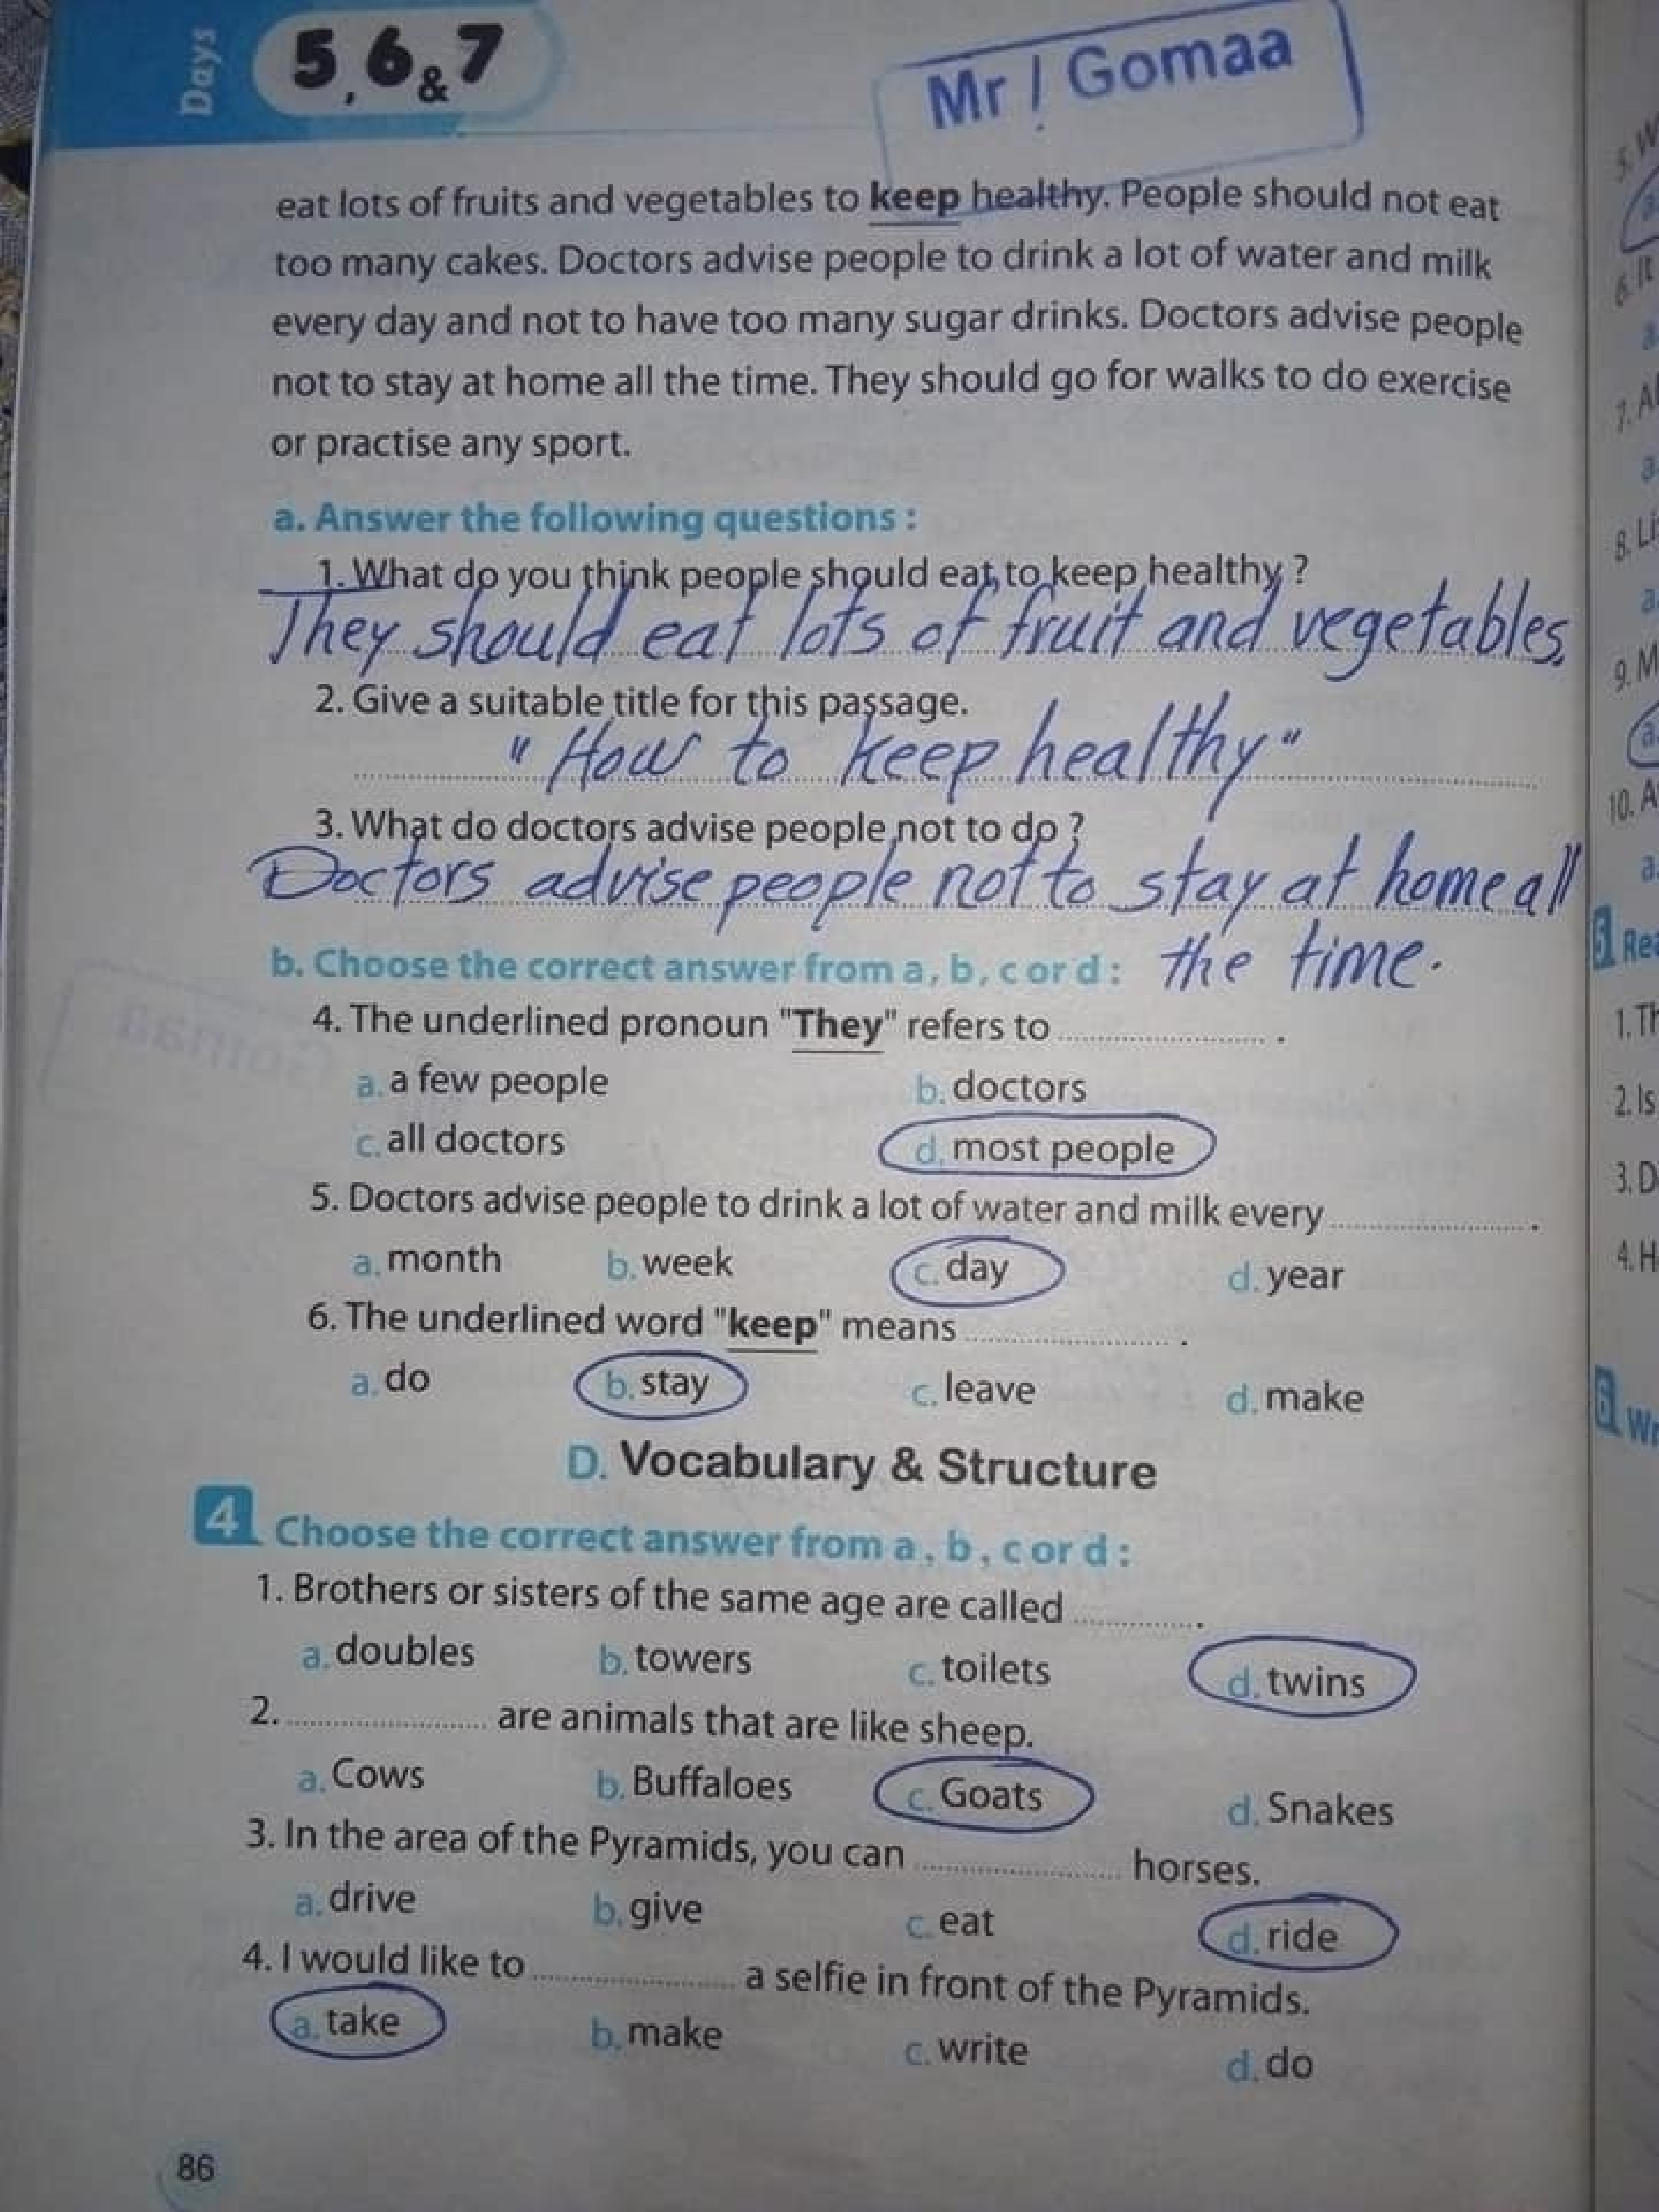 Days 5, 6 & 7
Mr / Gomaa
eat lots of fruits and vegetables to keep healthy. People should not eat
too many cakes. Doctors advise people to drink a lot of water and milk
every day and not to have too many sugar drinks. Doctors advise people
not to stay at home all the time. They should go for walks to do exercise
or practise any sport.
a. Answer the following questions :
1. What do you think people should eat, to keep healthy ?
They should eat lots of fruit and vegetables.
2. Give a suitable title for this passage.
" How to keep healthy "
3. What do doctors advise people not to do ?
Doctors advise people not to stay at home all
the time.
b. Choose the correct answer from a, b, c or d :
4. The underlined pronoun "They" refers to .................... .
a. a few people b. doctors
c. all doctors d. most people
5. Doctors advise people to drink a lot of water and milk every .................... .
a. month b. week c. day d. year
6. The underlined word "keep" means .................... .
a. do b. stay c. leave d. make
D. Vocabulary & Structure
4 Choose the correct answer from a, b, c or d :
1. Brothers or sisters of the same age are called ............ .
a. doubles b. towers c. toilets d. twins
2. .................... are animals that are like sheep.
a. Cows b. Buffaloes c. Goats d. Snakes
3. In the area of the Pyramids, you can .................... horses.
a. drive b. give c. eat d. ride
4. I would like to .................... a selfie in front of the Pyramids.
a. take b. make c. write d. do
86